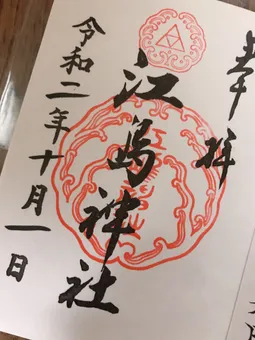 奉拝
江島神社
令和二年十月一日